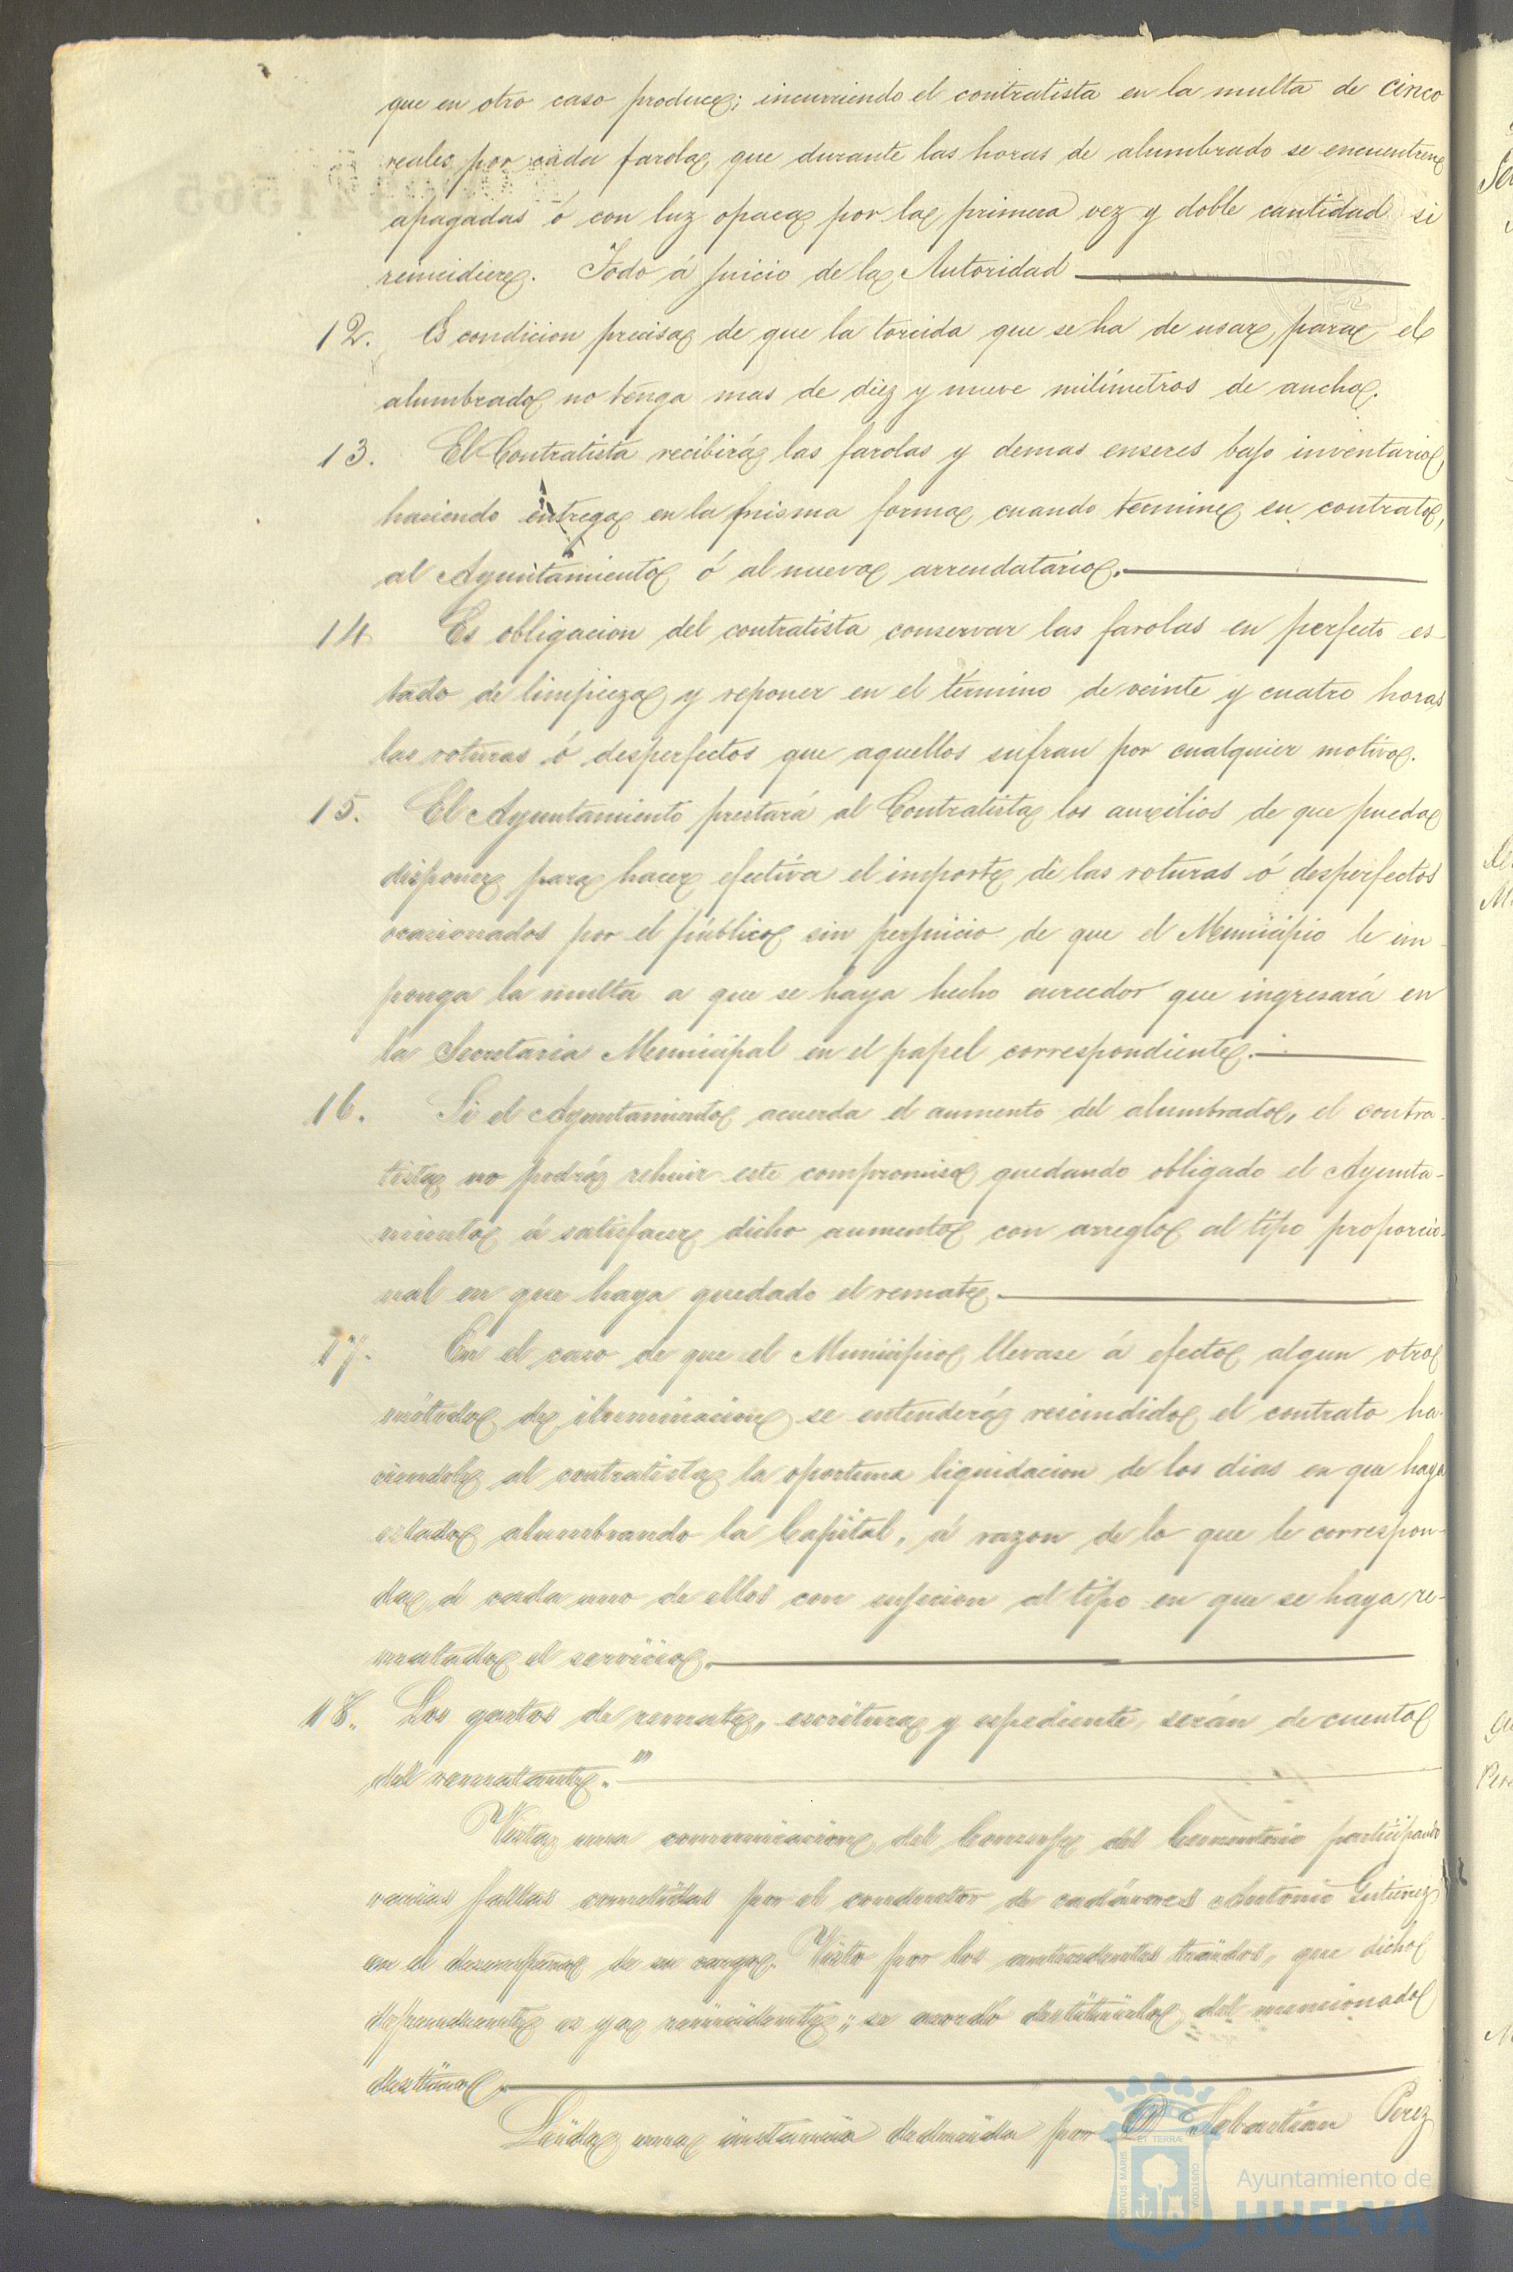 que en otro caso produce; incurriendo el contratista en la multa de cinco
reales por cada farola que durante las horas de alumbrado se encuentren
apagadas ó con luz opaca por la primera vez y doble cantidad si
reincidiere. Todo á juicio de la Autoridad
12. Es condicion precisa de que la torcida que se ha de usar para el
alumbrado no tenga mas de diez y nueve milímetros de ancho.
13. El Contratista recibirá las farolas y demas enseres bajo inventario,
haciendo entrega en la misma forma cuando termine su contrato,
al Ayuntamiento ó al nuevo arrendatario.
14 Es obligacion del contratista conservar las farolas en perfecto es-
tado de limpieza y reponer en el término de veinte y cuatro horas
las roturas ó desperfectos que aquellos sufran por cualquier motivo.
15. El Ayuntamiento prestará al Contratista los auxilios de que pueda
disponer para hacer efectiva el importe de las roturas ó desperfectos
ocasionados por el público sin perjuicio de que el Municipio le im-
ponga la multa a que se haya hecho acreedor que ingresará en
la Secretaria Municipal en el papel correspondiente.
16. Si el Ayuntamiento acuerda el aumento del alumbrado, el contra-
tista no podrá rehuir este compromiso quedando obligado el Ayunta-
miento á satisfacer dicho aumento con arreglo al tipo proporcio-
nal en que haya quedado el remate.
17. En el caso de que el Municipio llevase á efecto algun otro
método de iluminacion se entenderá rescindido el contrato ha-
ciendole al contratista la oportuna liquidacion de los dias en que haya
estado alumbrando la Capital, á razon de lo que le correspon-
da á cada uno de ellos con sujecion al tipo en que se haya re-
matado el servicio.
18. Los gastos de remate, escritura y espediente, serán de cuenta
del rematante."
Vista una comunicacion del Conserje del Cementerio participando
varias faltas cometidas por el conductor de cadáveres Antonio Gutierrez
en el desempeño de su cargo. Visto por los antecedentes traidos, que dicho
dependiente es ya reincidente; se acordó destituirlo del mencionado
destino.
Leida una instancia deducida por D. Sebastian Perez
ET TERRÆ
PORTUS MARIS
CUSTODIA
Ayuntamiento de
HUELVA